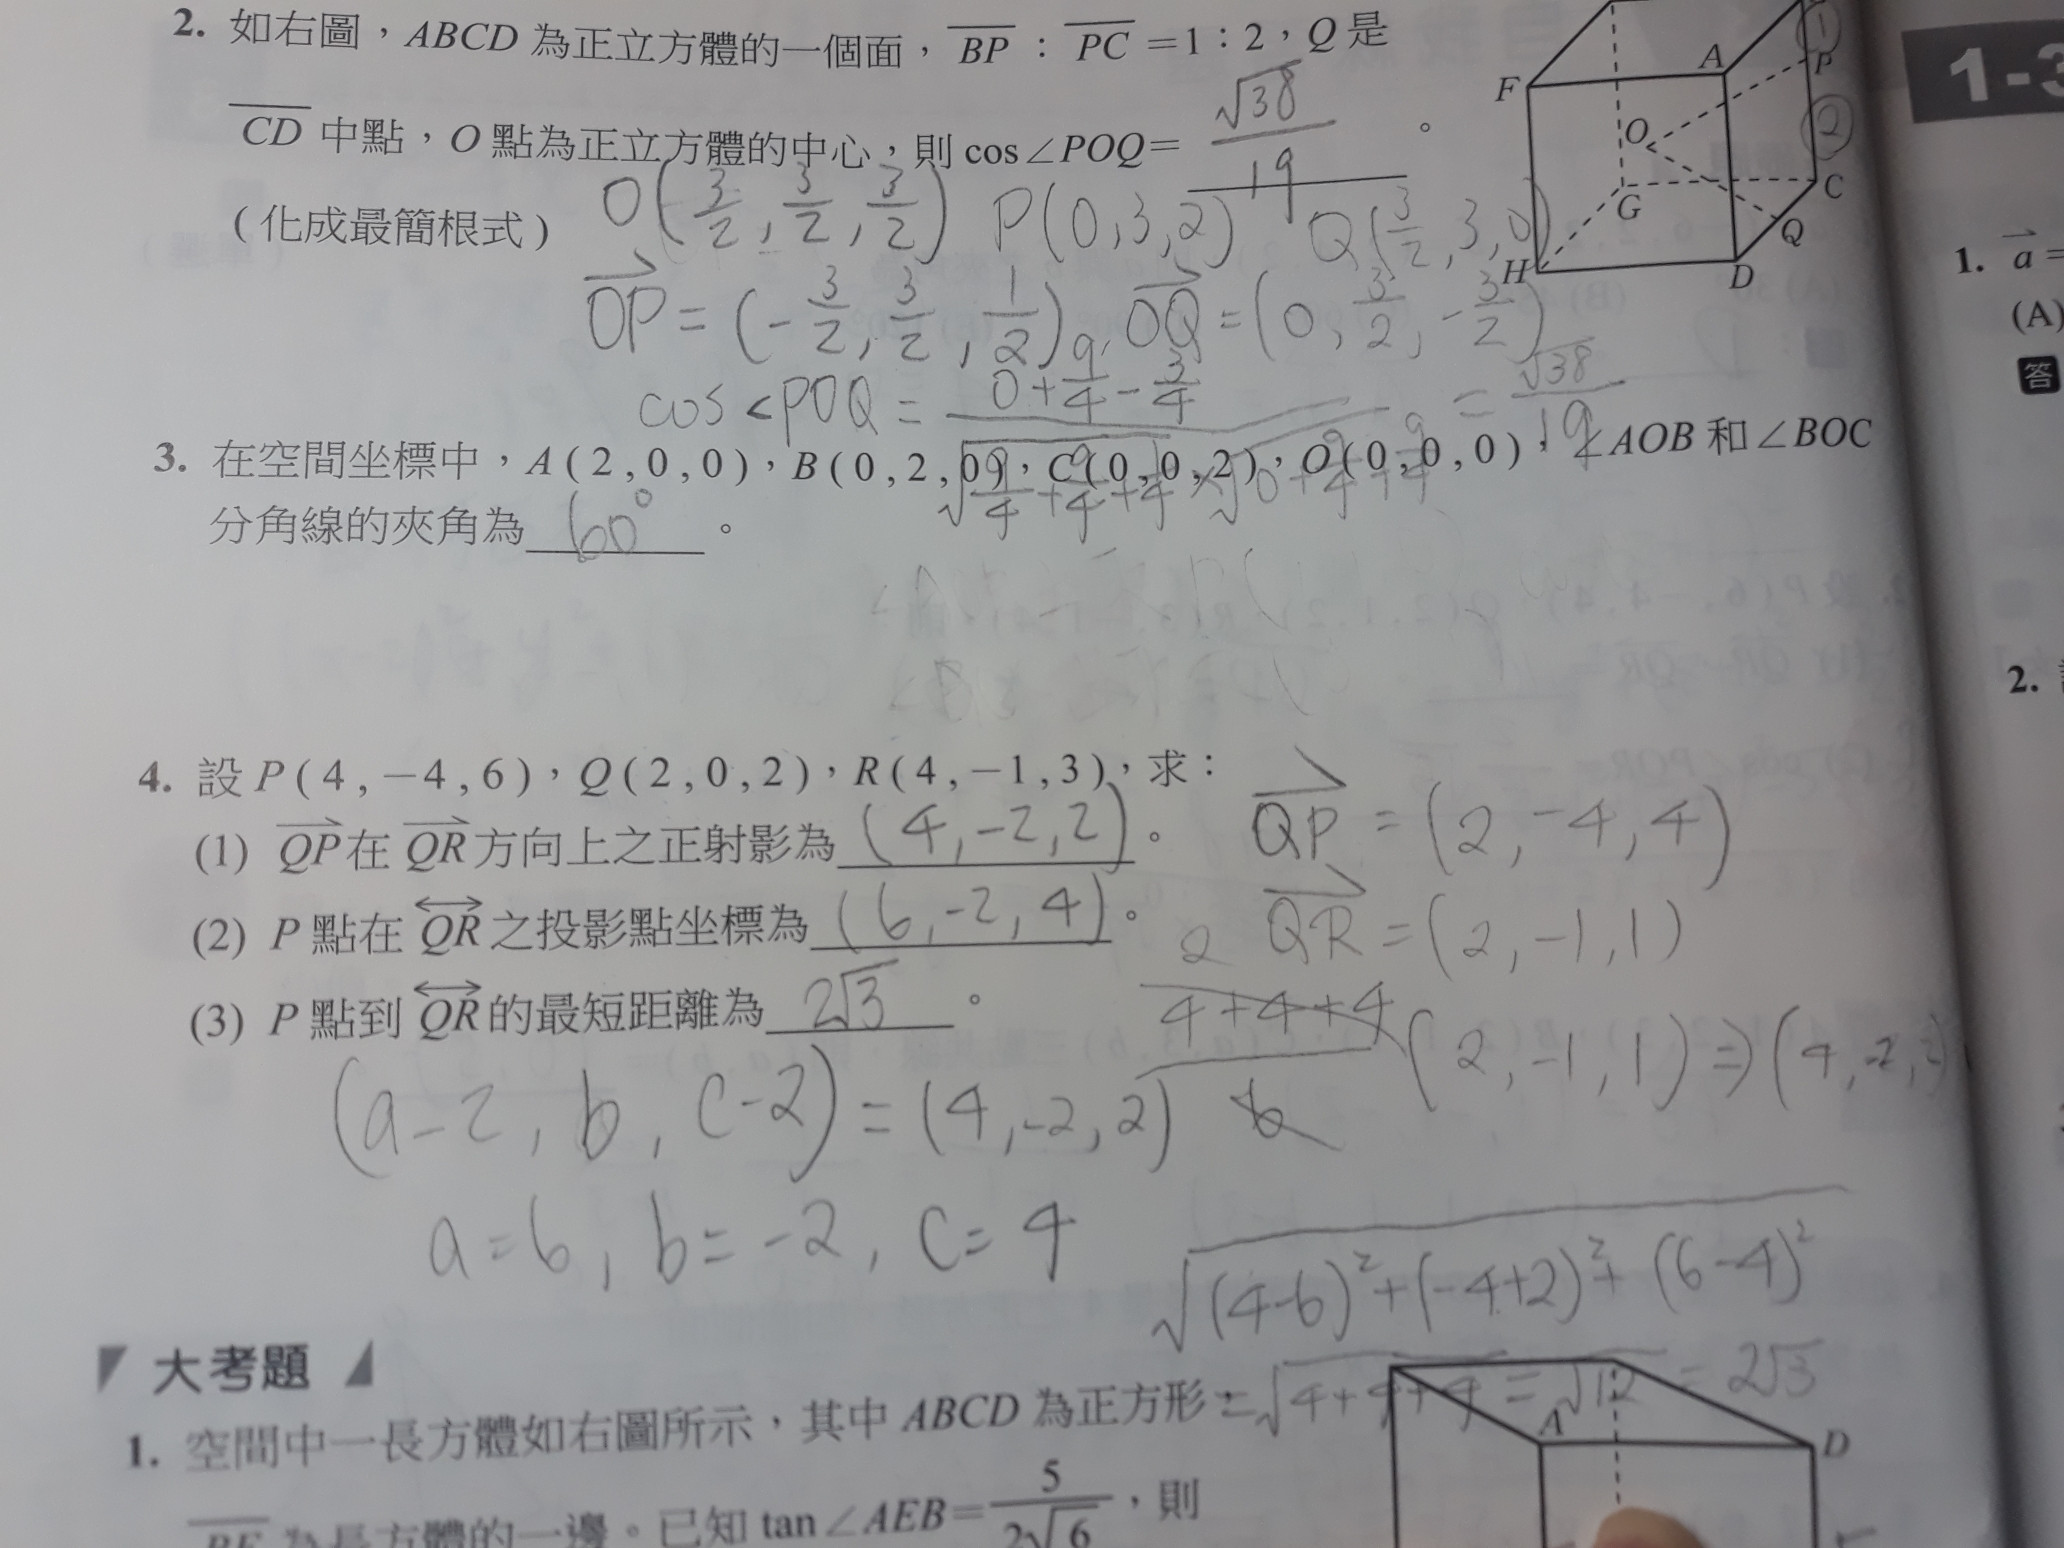 2. 如右圖，ABCD 為正立方體的一個面，BP：PC＝1：2，Q 是
CD 中點，O 點為正立方體的中心，則 cos∠POQ＝ √38/19 。
（化成最簡根式）
O(3/2, 3/2, 3/2) P(0,3,2) Q(3/2, 3, 0)
OP = (-3/2, 3/2, 1/2), OQ = (0, 3/2, -3/2)
cos<POQ = (0+9/4-3/4)/(√(9/4+9/4+1/4) × √(0+9/4+9/4)) = √38/19
F A P O C G Q H D
1
2
3. 在空間坐標中，A(2,0,0)，B(0,2,0)，C(0,0,2)，O(0,0,0)，∠AOB 和∠BOC
分角線的夾角為 60° 。
4. 設 P(4,−4,6)，Q(2,0,2)，R(4,−1,3)，求：
(1) QP在 QR方向上之正射影為 (4,-2,2) 。
(2) P 點在 QR之投影點坐標為 (6,-2,4) 。
(3) P 點到 QR的最短距離為 2√3 。
QP = (2,-4,4)
QR = (2,-1,1)
2
4+4+4
6
(2,-1,1) ⇒ (4,-2,2)
(a-2, b, c-2) = (4,-2,2)
a=6, b=-2, c=4
√((4-6)²+(-4+2)²+(6-4)²)
=√(4+4+4) = √12 = 2√3
大考題
1. 空間中一長方體如右圖所示，其中 ABCD 為正方形，
BE 為長方體的一邊。已知 tan∠AEB＝5/(2√6)，則
A D
1-3
1. a＝
(A)
答
2.